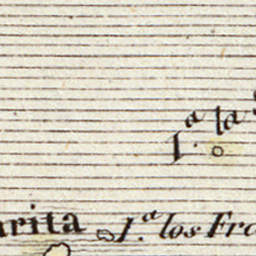 I.ª la
arita I.ª los Fra